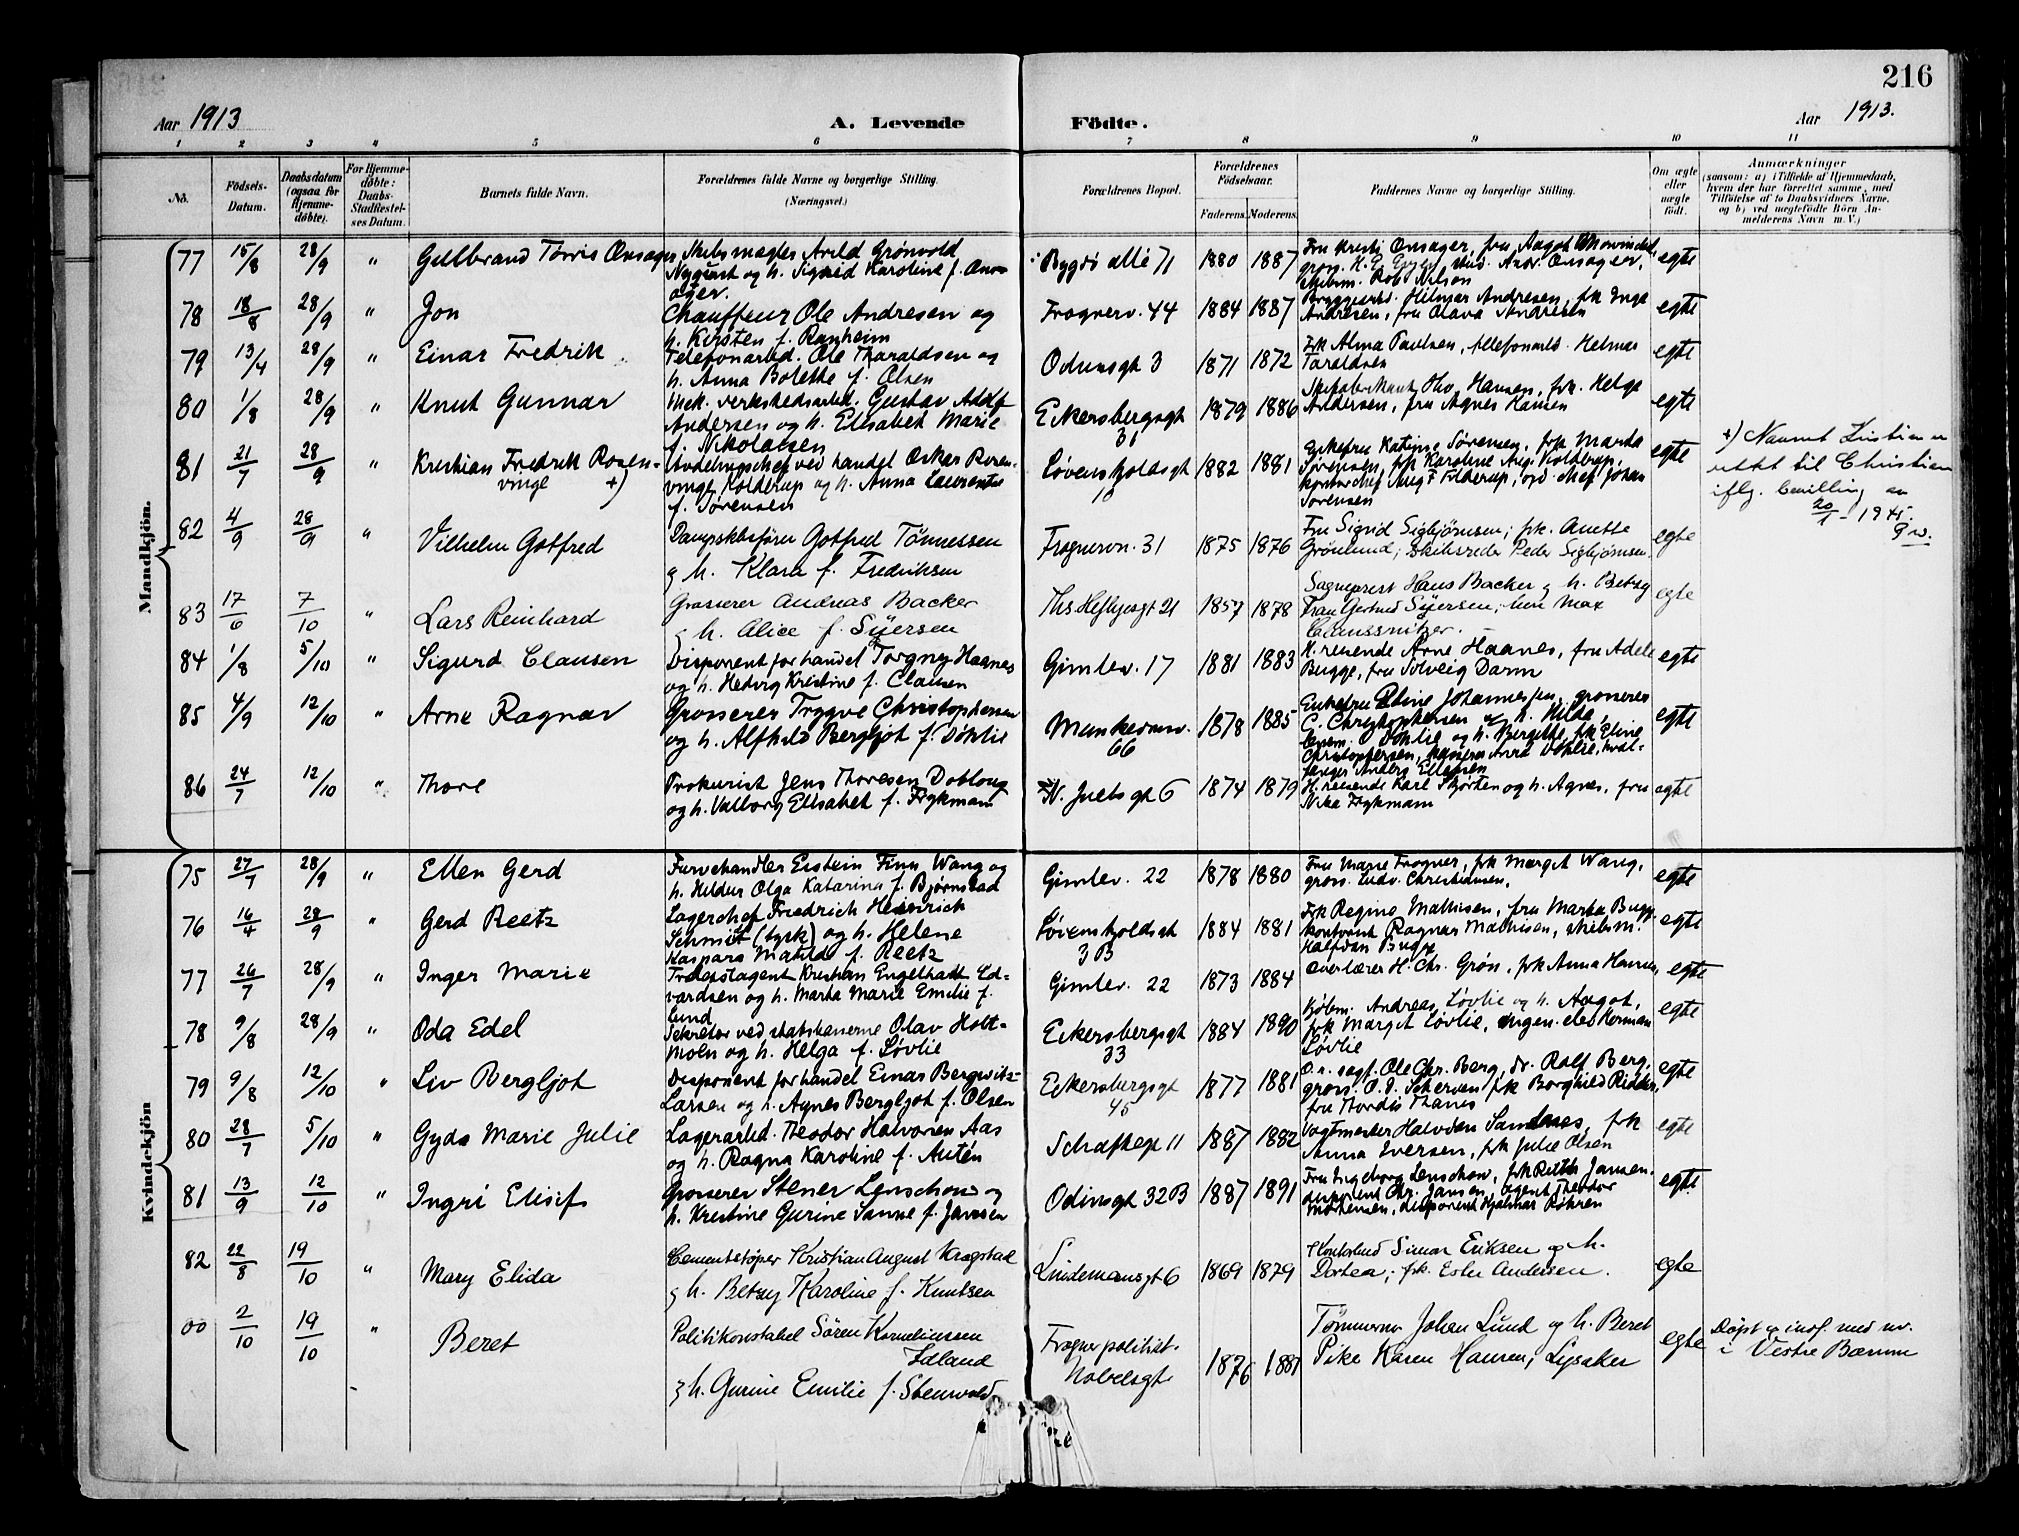 216
Aar 1913
A. Levende
Födte.
Aar 1913.
1 2 3 4 5 6 7 8 9 10 11
No.
Födsels-Datum.
Daabsdatum (ogsaa for Hjemme-døbte).
For Hjemme-døbte: Daabs-Stadfæstel-ses Datum.
Barnets fulde Navn.
Forældrenes fulde Navne og borgerlige Stilling.
(Næringsvei.)
Forældrenes Bopæl.
Forældrenes Födselsaar.
Faderens. Moderens.
Faddernes Navne og borgerlige Stilling.
Om ægte eller uægte født.
Anmærkninger
(saasom: a) i Tilfælde af Hjemmedaab, hvem der har forrettet samme, med Tilföielse af to Daabsvidners Navne, og b) ved uægtefödte Börn Anmelderens Navn m. V.)
Mandkjön.
77 15/8 28/9 " Gulbrand Tørris Onsager Skibsmægler Arild Grönvold
Nyquist og h. Sigrid Karoline f. Onsager.
Bygdö allé 71 1880 1887 Fru Kristi Onsager, fru Aagot Mowinckel, gros. stud. Andr. Onsager, skibsm. Rob. Nilson egte
78 18/8 28/9 " Jon Chauffeur Ole Andresen og
h. Kirsten f. Ranheim
Frognerv. 44 1884 1887 Bryggearb. Hilmar Andresen, frk Inga Andresen, fru Olava Andresen egte
79 13/4 28/9 " Einar Fredrik Telefonarbd. Ole Tharaldsen og
h. Anna Bolette f. Olsen
Odinsgt 3 1871 1872 Frk Alma Paulsen, telefonarb. Helmer Taraldsen egte
80 1/8 28/9 " Knut Gunnar Mek. verkstedsarbd. Gustav Adolf
Andersen og h. Elisabet Marie
f. Nikolaisen
Eckersbergsgt 31 1879 1886 Hansen, frk. Helga Andersen, fru Agnes Hansen egte
81 21/7 28/9 " Kristian Fredrik Rosen-
vinge +)
Avdelingschef ved handel Oskar Rosen-
vinge Kolderup og h. Anna Laurentse
f. Sörensen
Løvenskoldsgt 10 1882 1881 Enkefru Katinge Sørensen, frk Marta Sørensen, frk Karoline Aug. Kolderup, kontorchef Aug. F. Kolderup, avd. chef Johan Sörensen egte
+) Navnet Kristian er
rettet til Christian
iflg. bevilling av
20/1 - 1945.
82 4/9 28/9 " Vilhelm Gotfred Dampskibsfører Gotfred Tönnessen
g h. Klara f. Fredriksen
Frognervn. 31 1875 1876 Fru Sigrid Sigbjörnsen; frk. Anette Grönlund; skibsreder Peder Sigbjörnsen. egte
83 17/6 7/10 " Lars Reinhard Grosserer Andreas Backer
g h. Alice f. Syersen
Ths Heftyesgt 21 1857 1878 Sogneprest Hans Backer g h. Betsy Fran Gertrud Syersen; herr Max Claussnitzer. egte
84 1/8 5/10 " Sigurd Clausen Disponent for handel Torgny Haanes
og h. Hedvig Kristine f. Clausen
Gimlev. 17 1881 1883 H. reisende Arne Haanes, fru Adele Bugge, fru Solveig Darm egte
85 4/9 12/10 " Arne Ragnar Grosserer Trygve Christophersen
og h. Alfhild Bergljot f. Döhlie
Munkedamsv. 66 1878 1885 Enkefru Eline Johannessen, grosserer C. Christophersen og h. Hilda, Döhlie og h. Bergitte, frk Eline Christophersen, Döhlie, Anders Ellefsen egte
86 24/7 12/10 " Thore Prokurist Jens Thoresen Dobloug
og h. Valborg Elisabet f. Frykmann
N. Juelsgt 6 1874 1879 H. reisende Karl Skjörten og h. Agnes, fru Nika Frykmann egte
Kvindekjön
75 27/7 28/9 " Ellen Gerd Farvehandler Eistein Finn Wang og
h. Hildur Olga Katarina f. Bjørnstad
Gimlev. 22 1878 1880 Fru Marie Frogner, frk Margit Wang, gros. Ludv. Christiansen. egte
76 16/4 28/9 " Gerd Reetz Lagerchef Friedrich Heinrich
Schmidt (tysk) og h. Helene
Kaspara Matilde f. Reetz
Løvenskjoldsgt 3 B 1884 1881 Frk Regine Mathisen, fru Marta Bugge, kontorist Ragnar Mathisen, skibsm. Halfdan Bugge egte
77 26/7 28/9 " Inger Marie Trælastagent Kristian Engelhardt Ed-
vardsen og h. Marta Marie Emilie f.
Lund
Gimlev. 22 1873 1884 Overlærer H. Chr. Grøn, frk Anna Hansen, egte
78 9/8 28/9 " Oda Edel Sekretær ved statsbanerne Olav Holt-
Moen og h. Helga f. Løvlie
Eckersbergsgt 33 1884 1890 Kjøbm. Andreas Løvlie og h. Aagot, frk Margit Løvlie, ingen. elev Herman Løvlie egte
79 9/8 12/10 " Liv Bergljot Disponent for handel Einar Bergwitz-
Larsen og h. Agnes Bergljot f. Olsen
Eckersbergsgt 45 1877 1881 O.r. sagf. Ole Chr. Berg, dr. Rolf Berg, gros. O. I. Scherven frk Borghild Ridder, fru Thordis Thanes egte
80 28/7 5/10 " Gyda Marie Julie Lagerarbd. Theodor Halvorsen Aas
og h. Ragna Karoline f. Autén
Schafteløp 11 1887 1882 Vagtmester Halvdan Sandnes, frk Anna Iversen, frk Julie Olsen egte
81 13/9 12/10 " Ingri Elisif Grosserer Stener Lenschow og
h. Kristine Gurine Sanne f. Jansen
Odinsgt 32 B 1887 1891 Fru Ingeborg Lenschow, frk Ruth Jansen. disponent Chr. Jansen, agent Theodor Mortensen, disponent Hjalmar Röhren egte
82 22/8 19/10 " Mary Elida Cementstøper Kristian August Kragstad
g h. Betsy Karoline f. Knutsen
Lindemansgt 6 1869 1879 Kontorbud Simon Eriksen og h. Dortea; frk. Ester Andersen. egte
00 2/10 19/10 " Beret Politikonstabel Sören Korneliussen
Idland
g h. Gurine Emilie f. Stenvold
Frogner politist.
Nobelsgt 1876 1881 Tømmerm. Johan Lund og h. Beret Pike Karen Hansen; Lysaker egte
Døpt g indf. med nr.
i Vestre Bærum